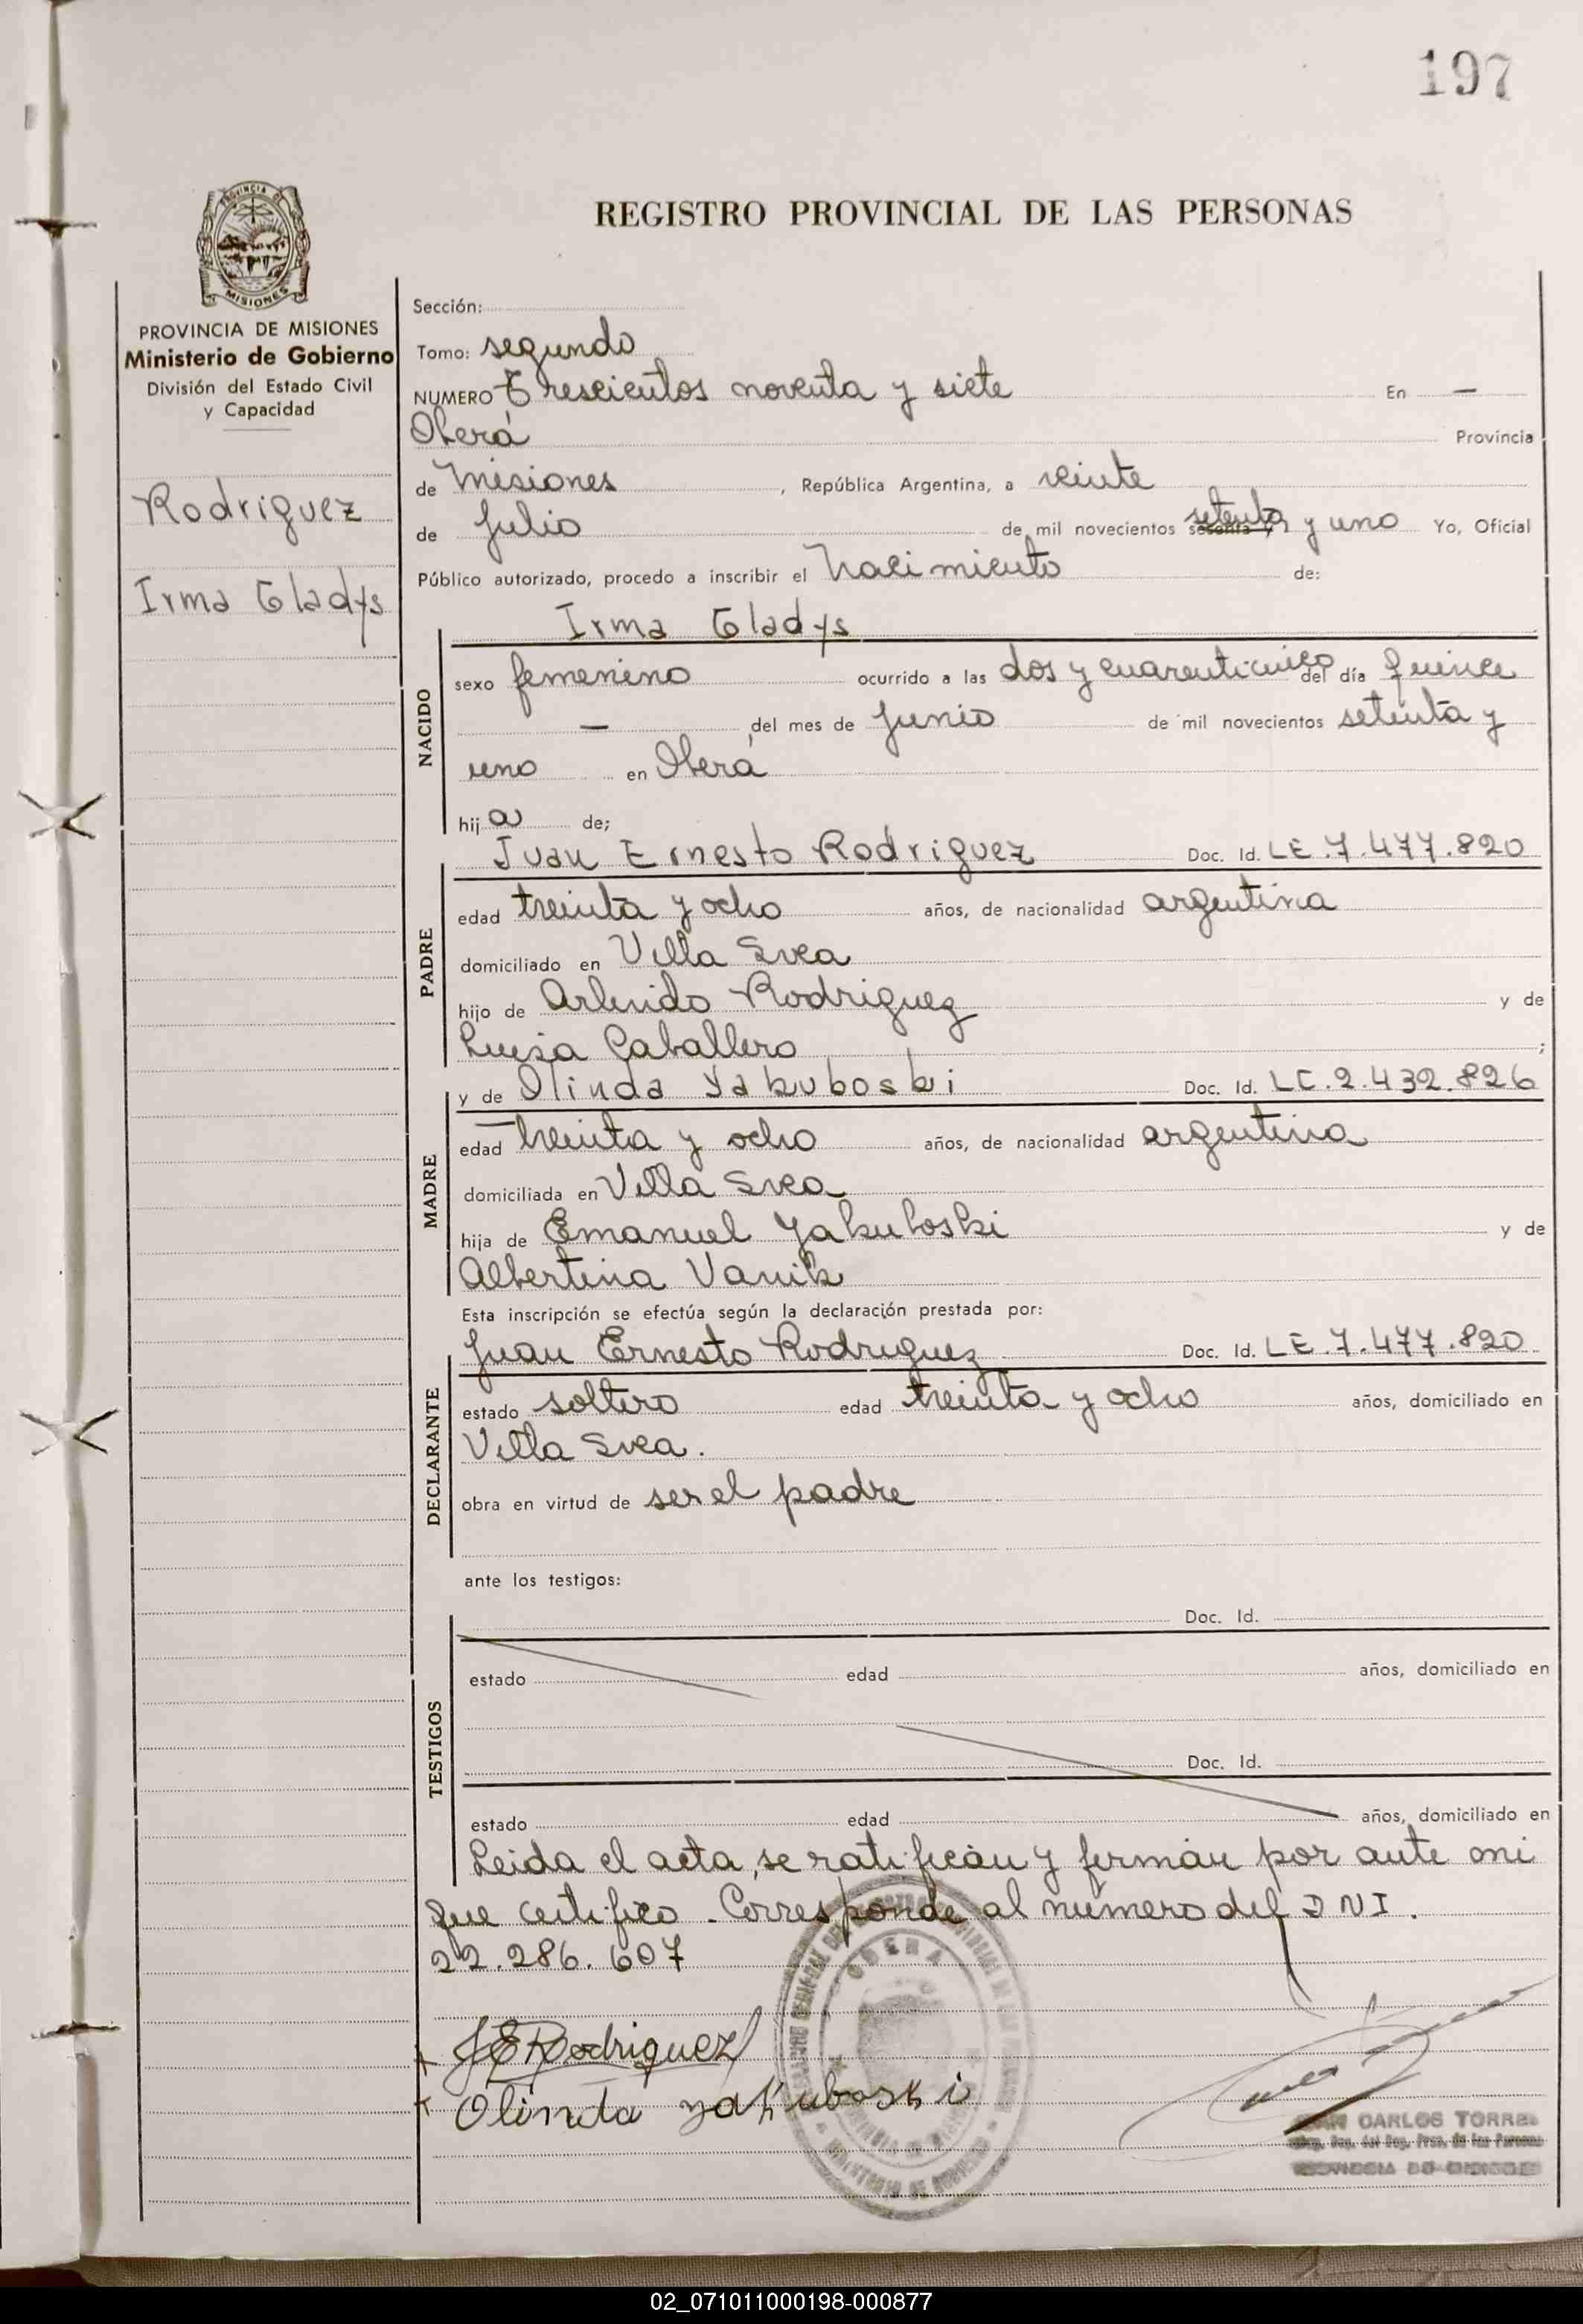 197
REGISTRO PROVINCIAL DE LAS PERSONAS
PROVINCIA DE MISIONES
Ministerio de Gobierno
División del Estado Civil
y Capacidad
Rodriguez
Irma Gladys
Sección:
Tomo: segundo
NUMERO Trescientos noventa y siete En —
Oberá Provincia
de Misiones, República Argentina, a veinte
de Julio de mil novecientos sesenta y setenta y uno Yo, Oficial
Público autorizado, procedo a inscribir el Nacimiento de:
Irma Gladys
NACIDO
sexo femenino ocurrido a las dos y cuarenticinco del día quince
— del mes de Junio de mil novecientos setenta y
uno en Oberá
hija de;
Juan Ernesto Rodriguez Doc. Id. LE.7.477.820
PADRE
edad treinta y ocho años, de nacionalidad argentina
domiciliado en Villa Svea
hijo de Arlindo Rodriguez y de
Luisa Caballero;
y de Olinda Yakuboski Doc. Id. LC.2.432.826
MADRE
edad treinta y ocho años, de nacionalidad argentina
domiciliada en Villa Svea
hija de Emanuel Yakuboski y de
Albertina Vanik
Esta inscripción se efectúa según la declaración prestada por:
Juan Ernesto Rodriguez Doc. Id. LE.7.477.820
DECLARANTE
estado soltero edad treinta y ocho años, domiciliado en
Villa Svea.
obra en virtud de ser el padre
ante los testigos:
Doc. Id.
TESTIGOS
estado edad años, domiciliado en
Doc. Id.
estado edad años, domiciliado en
Leida el acta, se ratifican y firman por ante mi
que certifico. Corresponde al número del DNI.
22.286.607
J E Rodriguez
Olinda yakuboski
OBERA
CARLOS TORRES
02_071011000198-000877